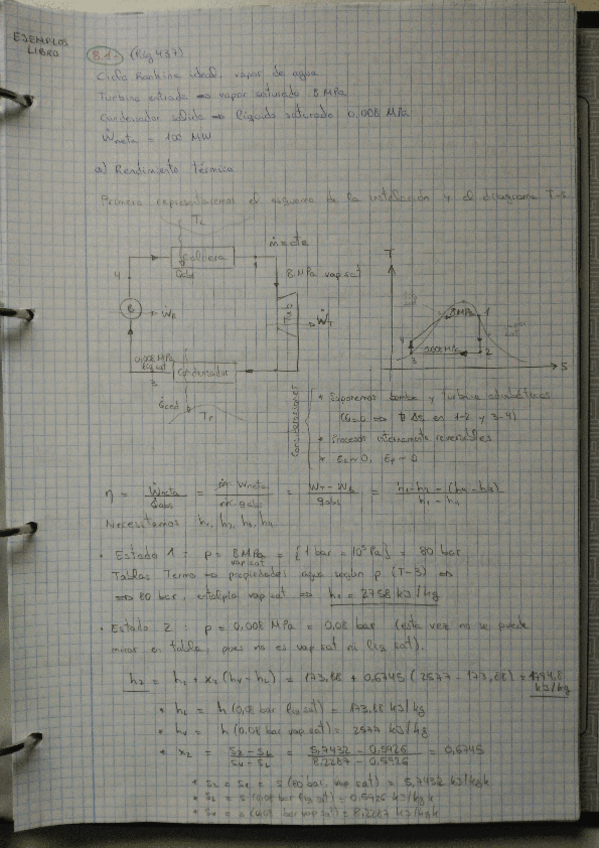 EJEMPLOS
LIBRO
8.1. (Pág 437)
Ciclo Rankine ideal, vapor de agua
Turbina entrada → vapor saturado 8 MPa
Condensador salida → líquido saturado 0,008 MPa
Ẇneta = 100 MW
a) Rendimiento térmico
Primero representaremos el esquema de la instalación y el diagrama T-s
Tc
Caldera
Q̇abs
ṁ = cte
4
1
8 MPa vap sat
B
ẆB
Turb
ẆT
0,008 MPa
líq sat
3
Condensador
Q̇ced
TF
T
8 MPa
1
4
0,008 MPa
3
2
s
Consideraciones
• Suponemos bomba y turbina adiabáticas
en 1-2 y 3-4)
• Procesos internamente reversibles
• Ec ~ 0, Ep ~ 0
η = Ẇneta / Q̇abs = ṁ · Wneta / ṁ · qabs = WT - WB / qabs = h1 - h2 - (h4 - h3) / h1 - h4
Necesitamos h1, h2, h3, h4
• Estado 1: p = 8 MPa = {1 bar = 10⁵ Pa} = 80 bar
vap sat
Tablas Termo → propiedades agua según p (T-3) ⇒
⇒ 80 bar, entalpía vap sat ⇒ h1 = 2758 kJ/kg
• Estado 2: p = 0,008 MPa = 0,08 bar (esta vez no se puede
mirar en tabla, pues no es vap sat ni líq sat).
h2 = hL + x2 (hv - hL) = 173,88 + 0,6745 (2577 - 173,88) = 1794,8
kJ/kg
• hL = h (0,08 bar líq sat) = 173,88 kJ/kg
• hv = h (0,08 bar vap sat) = 2577 kJ/kg
• x2 = s2 - sL / sv - sL = 5,7432 - 0,5926 / 8,2287 - 0,5926 = 0,6745
• s2 = s1 = s (80 bar, vap sat) = 5,7432 kJ/kgK
• sL = s (0,08 bar líq sat) = 0,5926 kJ/kgK
• sv = s (0,08 bar vap sat) = 8,2287 kJ/kgK